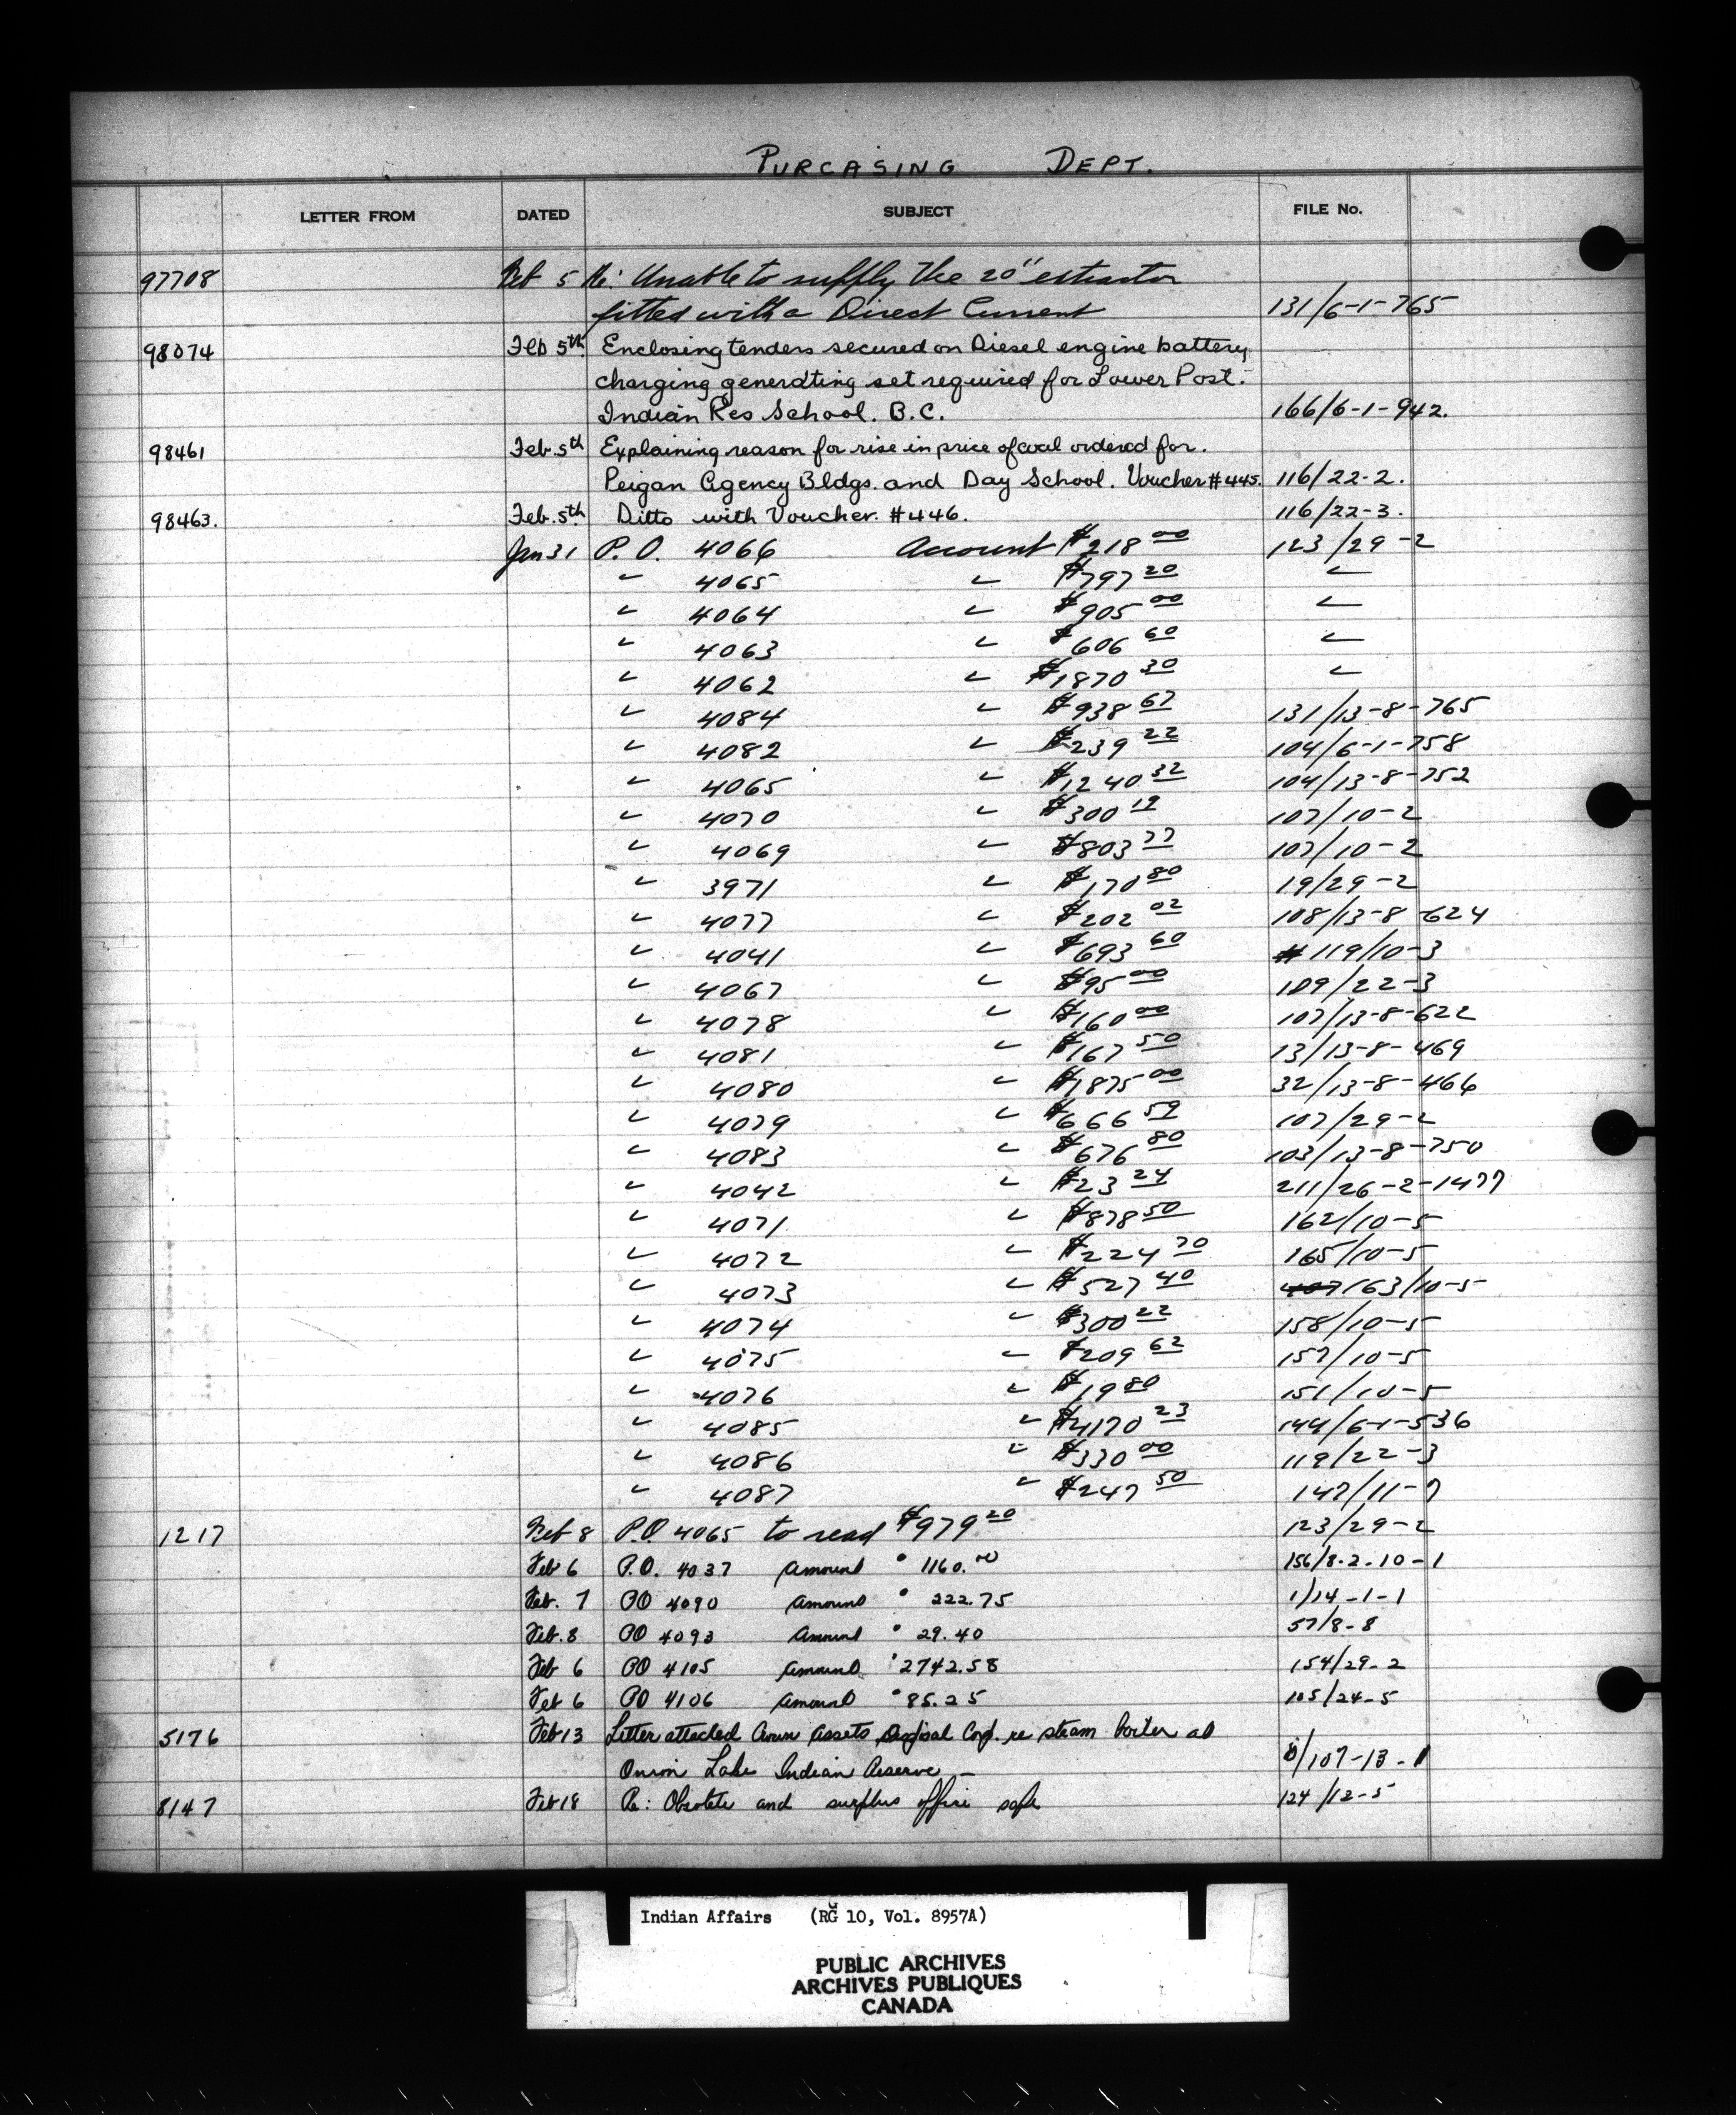 PURCASING DEPT.
LETTER FROM DATED SUBJECT FILE No.
97708 Feb 5 Re: Unable to supply the 20" extractor
fitted with a Direct Current 131/6-1-765
98074 Feb 5th Enclosing tenders secured on Diesel engine battery
charging generating set required for Lower Post.
Indian Res School. B.C. 166/6-1-942.
98461 Feb. 5th Explaining reason for rise in price of coal ordered for.
Peigan Agency Bldgs. and Day School. Voucher #445. 116/22-2.
98463. Feb. 5th Ditto with Voucher. #446. 116/22-3.
Jan 31 P. O. 4066 Account $218 00 123/29-2
" 4065 " $797 20 "
" 4064 " $905 00 "
" 4063 " $606 60 "
" 4062 " $1870 30 "
" 4084 " $938 67 131/13-8-765
" 4082 " $239 22 104/6-1-758
" 4065 " $1240 32 104/13-8-752
" 4070 " $300 19 107/10-2
" 4069 " $803 77 107/10-2
" 3971 " $170 80 19/29-2
" 4077 " $202 02 108/13-8-624
" 4041 " $693 60 119/10-3
" 4067 " $95 00 109/22-3
" 4078 " $160 00 107/13-8-622
" 4081 " $167 50 13/13-8-469
" 4080 " $1875 00 32/13-8-466
" 4079 " $666 59 107/29-2
" 4083 " $676 80 103/13-8-750
" 4042 " $23 24 211/26-2-1477
" 4071 " $878 50 162/10-5
" 4072 " $224 70 165/10-5
" 4073 " $527 40 163/10-5
" 4074 " $300 22 158/10-5
" 4075 " $209 62 157/10-5
" 4076 " $19 80 151/10-5
" 4085 " $4170 23 144/6-1-536
" 4086 " $330 00 119/22-3
" 4087 " $247 50 147/11-7
1217 Feb 8 P.O. 4065 to read $979 20 123/29-2
Feb 6 P.O. 4037 Amount " 1160. 00 156/8-2-10-1
Feb. 7 PO 4090 Amount " 222.75 1/14-1-1
Feb. 8 PO 4093 Amount " 29.40 57/8-8
Feb 6 PO 4105 Amount " 2742.58 154/29-2
Feb 6 PO 4106 Amount " 85.25 105/24-5
5176 Feb 13 Letter attached Crown Assets Disposal Corp. re steam boiler at
Onion Lake Indian Reserve - /107-13-1
8147 Feb 18 Re: Obsolete and surplus office safe 124/12-5
Indian Affairs (RG 10, Vol. 8957A)
PUBLIC ARCHIVES
ARCHIVES PUBLIQUES
CANADA